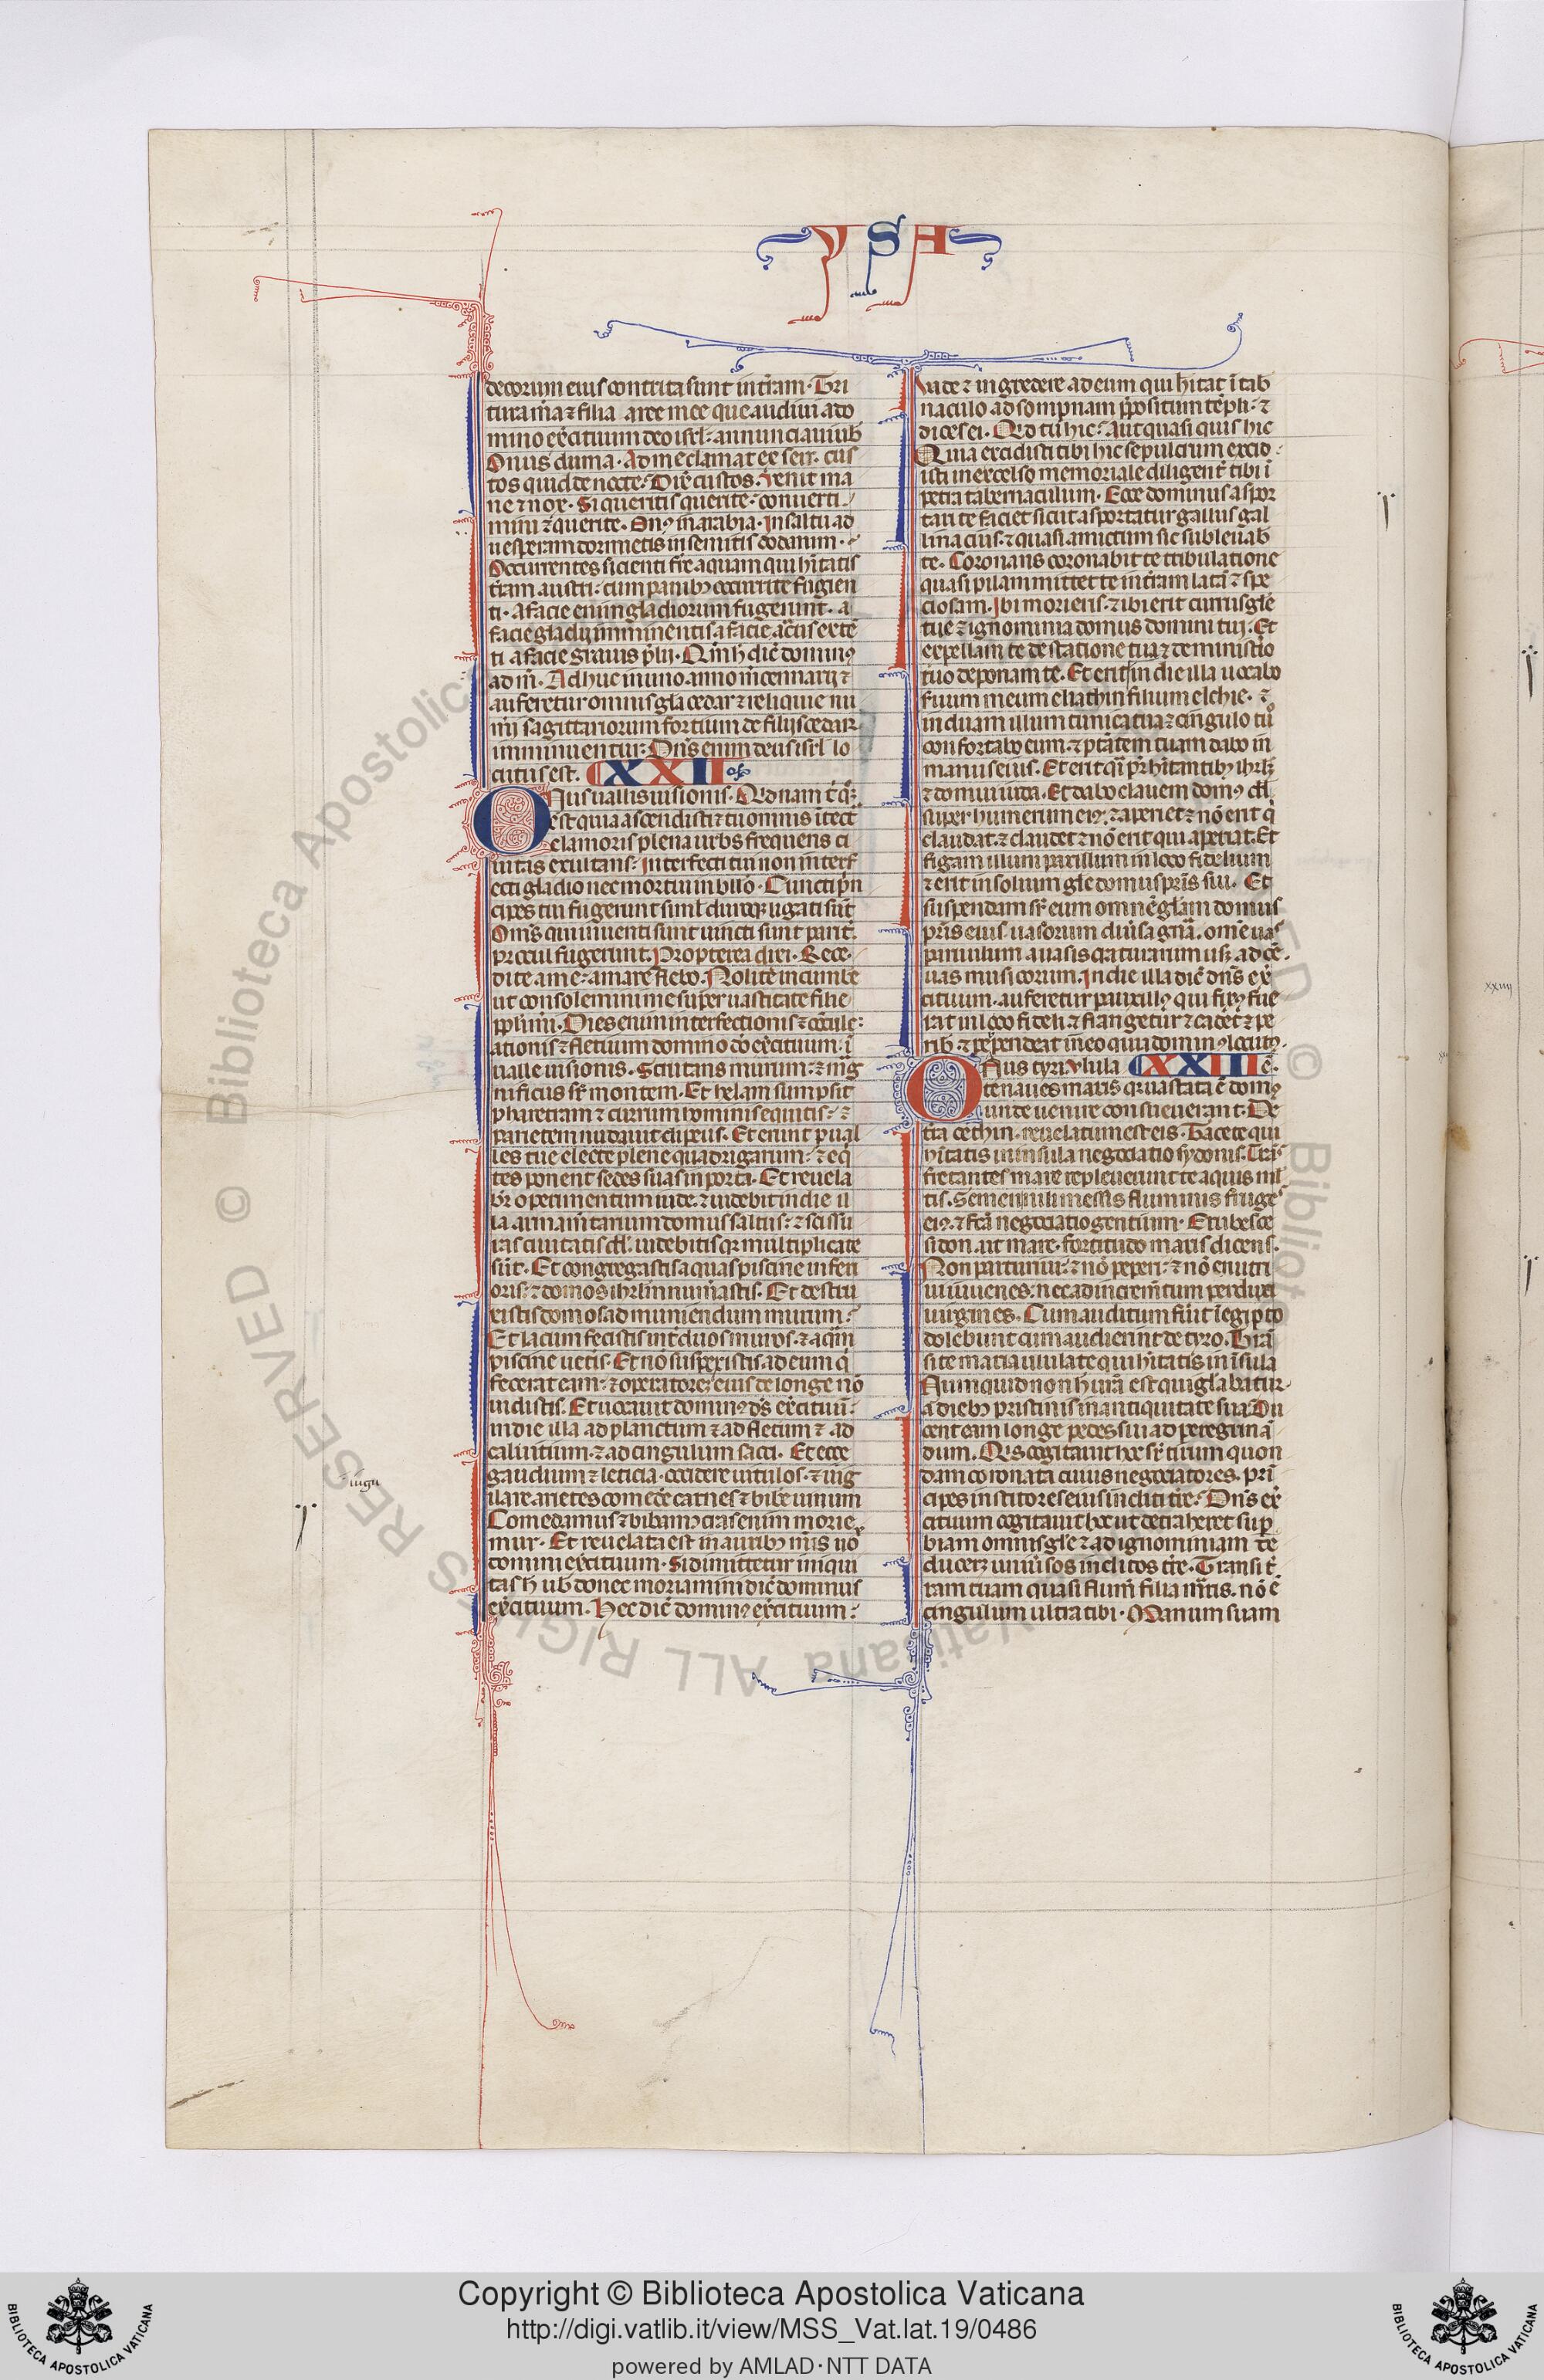 YSA
decorum eius contrita sunt in t̃ram · Tri
tura m̃a ⁊ filia aree mee que audiui a do
mino exc̃ituum deo isrł · annunciaui uob̃
Onus duma · Ad me clamat ex seir · cus
tos quid de nocte · Dix̃ custos · Venit ma
ne ⁊ nox · Si queritis querite · conuerti
mini ⁊ querite · Onꝰ in arabia · In saltu ad
uesperam dormietis in semitis dodanim ·
Occurrentes sicienti fr̃e aquam qui hĩtatis
t̃ram austri · cum panibꝫ occurrite fugien
ti · a facie enim gladiorum fugerunt · a
facie gladij imminentis a facie arcus exte
ti a facie grauis p̃lij · Qm̃ h̃ dic̃ dominꝰ
ad m̃ · Adhuc in uno anno m̃cennarij ⁊
auferetur omnis gła cedar ⁊ relique nu
mi sagittariorum fortium de filijs cedar
imminuentur · Dñs enim deus isrł lo
cutus est · XXII
Onus uallis uisionis · Qđnam t̃ qͦꝫ
est quia ascendisti ⁊ tu omnis ĩ tect̃
clamoris plena urbs frequens ci
uitas exultans · Interfecti tui non interf
ecti gladio nec mortui in bello · Cuncti pĩn
cipes tui fugerunt siml̃ dureqꝫ ligati sũt
Oms̃ qui inuenti sunt uincti sunt parit̃
procul fugerunt · Propterea dixi · Rece
dite a me · amare flebo · Nolite incumbe
ut consolemini me super uastitate filie
ppl̃i mi · Dies enim interfectionis ⁊ cõculc
ationis ⁊ fletuum domino dõ exc̃ituum · ĩ
ualle uisionis · Scrutans murum · ⁊ mag
nificus sr̃ montem · Et helam sumpsit
pharetram ⁊ currum hominis equitis · ⁊
parietem nudauit clipeus · Et erunt p̃ual
les tue electe plene quadrigarum · ⁊ eq̃
tes ponent sedes suas in porta · Et reuela
bit̃ operimentum iude · ⁊ uidebit in die il
la armam̃tarium domus saltus · ⁊ scissu
ras ciuitatis dd̃ · uidebitis qꝫ multiplicate
sũt · Et congregastis aquas piscine inferi
oris · ⁊ domos ihrłm numastis · Et destru
xistis domos ad muniendum murum ·
Et lacum fecistis int̃ duos muros · ⁊ aqm̃
piscine uetis · Et nõ suspexistis ad eum q̃
fecerat eam · ⁊ operatorẽ eius de longe nõ
uidistis · Et uocauit dominꝰ dš exc̃ituũ ·
in die illa ad planctum ⁊ ad fletum ⁊ ad
caluitium · ⁊ ad cingulum sacci · Et ecce
gaudium ⁊ leticia · occidere uitulos · ⁊ iug
ilare arietes comede carnes ⁊ bibe uinum
Comedamus ⁊ bibamꝰ cras enim morie
mur · Et reuelata est in auribꝫ m̃is uõ
domini exc̃ituum · Si dimittetur iniqui
tas h̃ uob̃ donec moriamini dic̃ dominus
exc̃ituum · Hec dic̃ dominꝰ exc̃ituum ·
iugu
Vade ⁊ ingredere ad eum qui hĩtat ĩ tab
naculo ad sompnam p̃positum tẽpli · ⁊
dices ei · Qđ tu hic · Aut quasi quis hic
Quia excidisti tibi hic sepulcrum excid
isti in excelso memoriale diligent̃ tibi ĩ
petra tabernaculum · Ecce dominus aspor
tari te faciet sicut asportatur gallus gal
linacius · ⁊ quasi amictum sic subleuab̃
te · Coronans coronabit te tribulatione
quasi pilam mittet te in t̃ram latã ⁊ spa
ciosam · Ibi morieris · ⁊ ibi erit currus głe
tue ⁊ ignominia domus domini tui · Et
expellam te de statione tua ⁊ de ministio
tuo deponam te · Et erit in die illa uocabo
seruum meum eliachin filium elchie · ⁊
induam illum tunica tua ⁊ cingulo tuo
confortabo eum · ⁊ ptãtem tuam dabo in
manus eius · Et erit q̃i pr̃ hĩtantibꝫ ihrłꝫ
⁊ domui iuda · Et dabo clauem domꝰ dd̃
super humerum eiꝰ · ⁊ aperiet ⁊ nõ erit q̃
claudat · ⁊ claudet ⁊ nõ erit qui aperiat · Et
figam illum paxillum in loco fidelium
⁊ erit in solium głe domus pr̃is sui · Et
suspendam sr̃ eum omnẽ głam domus
pr̃is eius uasorum diuũsa gña · om̃e uas
paruulum a uasis craturarum usqꝫ ad oẽ
uas musicorum · In die illa dic̃ dñs ex̃
cituum · auferetur paxillꝰ qui fixꝰ fue
rat in loco fideli · ⁊ frangetur ⁊ cadet ⁊ pe
rib̃ q̃ pependerat in eo quia dominꝰ locutꝰ
Onus tyri · Vlula XXIII ẽ ·
te naues maris qꝫ uastata ẽ domꝰ
unde uenire consueuerant · De
t̃ra cethin · reuelatum est eis · Tacete qui
hĩtatis in insula negociatio sydonis · Trãs
fretantes mare repleuerunt te aquis ml̃
tis · Semen nili messis fluminis fruges
eiꝰ · ⁊ fc̃a negociatio gentium · Erubesce
sidon · ait mare · fortitudo maris dicens ·
Non parturiui · ⁊ nõ peperi · ⁊ nõ enutri
ui iuuenes · nec ad increm̃tum perduxi
uirgines · Cum auditum fũit ĩ egipto
dolebunt cum audierint de tyro · Trãs̃
site maria ululate qui hĩtatis in ĩsula
Numquid non h̃ ur̃a est qui głabatur
a diebꝫ pristinis in antiquitate sua Du
cent eam longe pedes sui ad peregrinã
dum · Qis cogitauit hec sr̃ tirum quon
dam coronata cuius negociatores · pri
cipes institores eius incliti t̃re · Dñs ex̃
cituum cogitauit hec ut detraheret sup
biam omnis głe ⁊ ad ignominiam de
duceret uniũsos inclitos t̃re · Transi t̃
ram tuam quasi flum̃ filia maris · nõ ẽ
cingulum ultra tibi · Manum suam
xxiiij
Copyright © Biblioteca Apostolica Vaticana
http://digi.vatlib.it/view/MSS_Vat.lat.19/0486
powered by AMLAD·NTT DATA
BIBLIOTECA APOSTOLICA VATICANA
BIBLIOTECA APOSTOLICA VATICANA